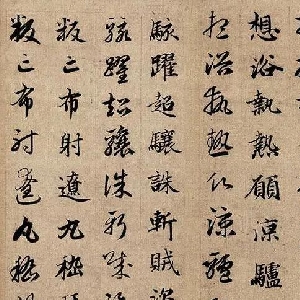 想浴執熱願涼驢
想浴執熱願涼驢
駭躍超驤誅斬賊盜
駭躍超驤誅斬賊
叛亡布射遼丸嵇
叛亡布射遼丸嵇